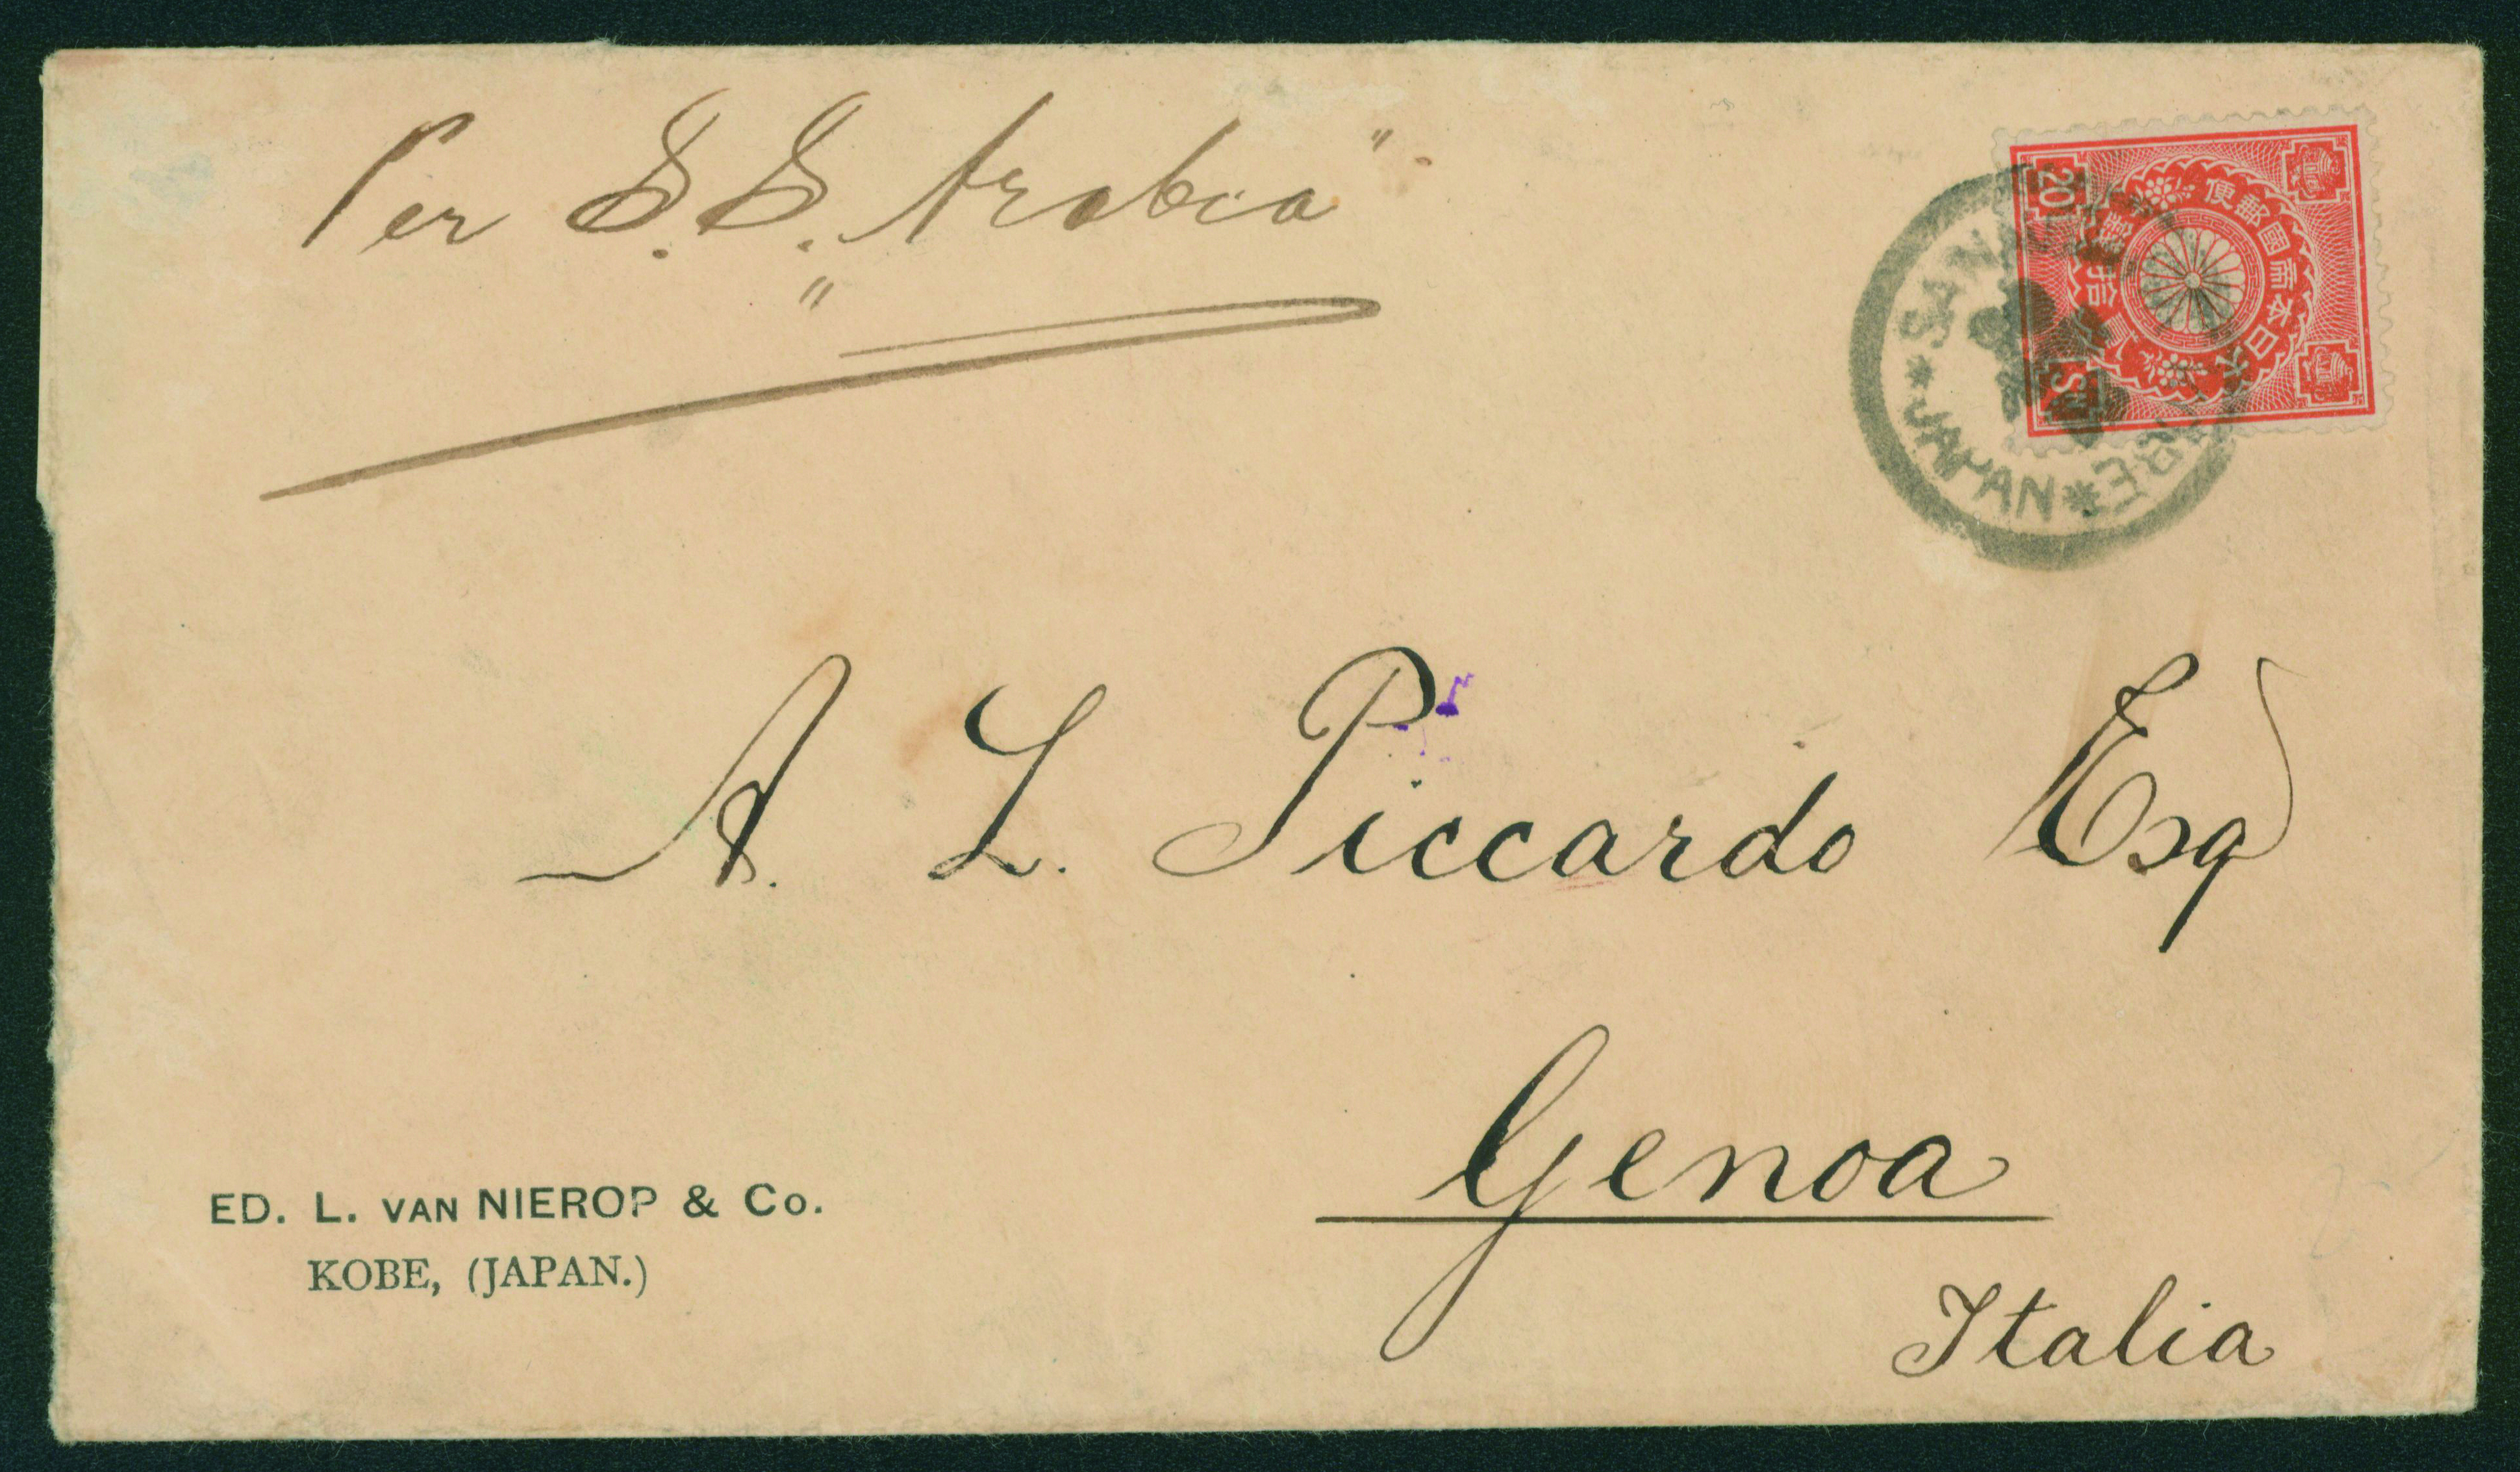 Per S.S. "Arabia"
20
大日本帝國郵便
SN
JAPAN
A. L. Piccardo Esq
Genoa
Italia
ED. L. VAN NIEROP & Co.
KOBE, (JAPAN.)